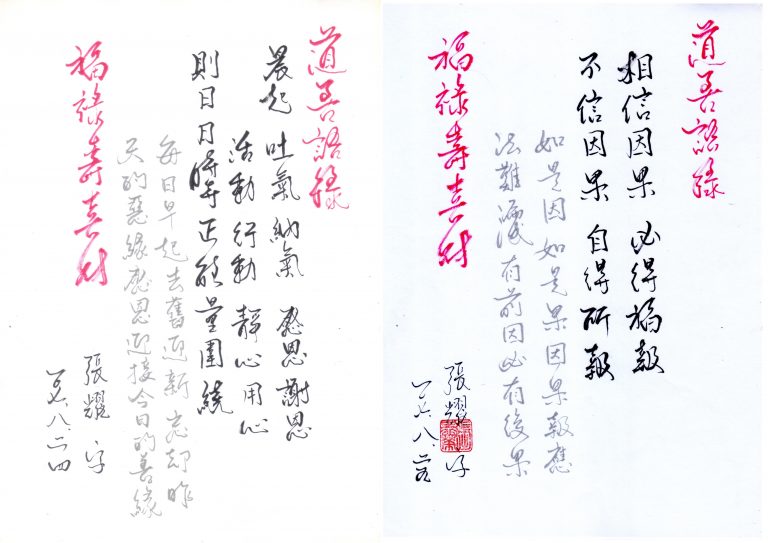 道善語錄
晨起 吐氣 納氣 感恩謝恩
活動 行動 靜心用心
則日日時時正能量圍繞
每日早起去舊迎新 忘卻昨
天的惡緣感恩迎接今日的善緣
福祿壽喜財
張耀 字
八.二四
道善語錄
相信因果 必得福報
不信因果 自得所報
如是因如是果因果報應
法難 有前因必有後果
福祿壽喜財
張耀 字
八.